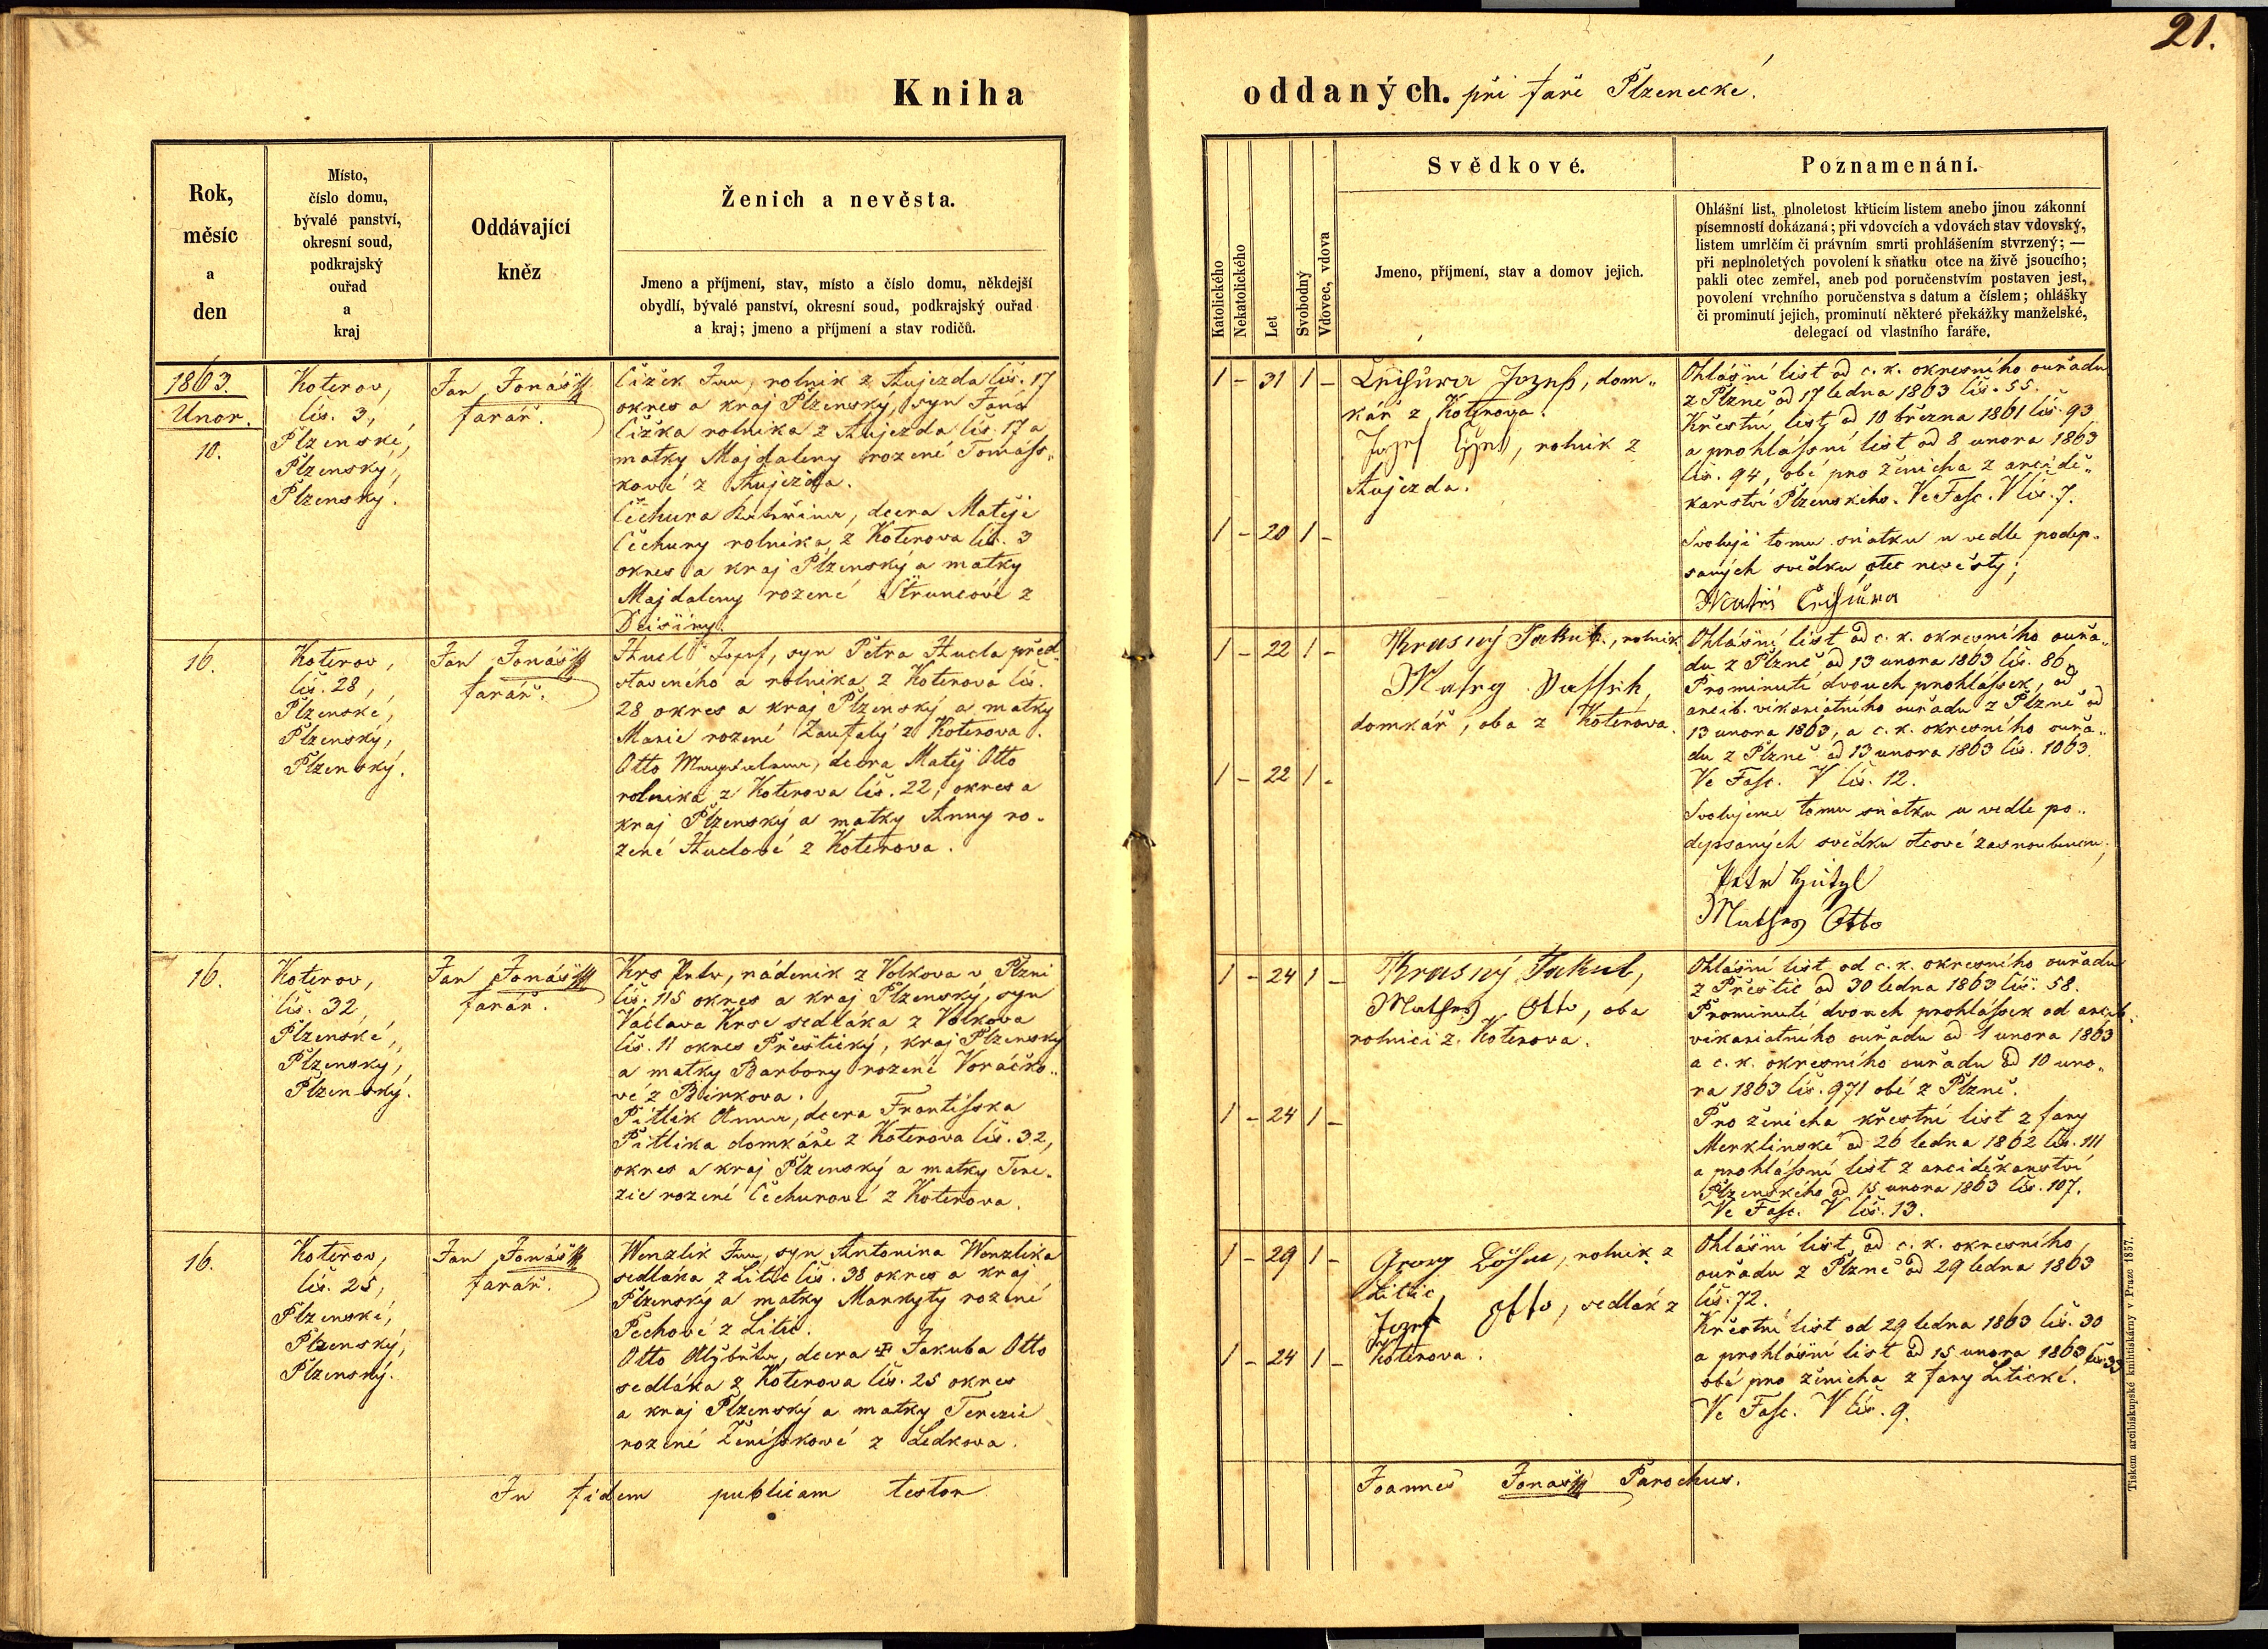 21.
Kniha
oddaných. při faře Plzenecké.
Rok,
měsíc
a
den
Místo,
číslo domu,
bývalé panství,
okresní soud,
podkrajský
ouřad
a
kraj
Oddávající
kněz
Ženich a nevěsta.
Jmeno a příjmení, stav, místo a číslo domu, někdejší
obydlí, bývalé panství, okresní soud, podkrajský ouřad
a kraj; jmeno a příjmení a stav rodičů.
Katolického
Nekatolického
Let
Svobodný
Vdovec, vdova
Svědkové.
Jmeno, příjmení, stav a domov jejich.
Poznamenání.
Ohlášní list, plnoletost křticím listem anebo jinou zákonní
písemností dokázaná; při vdovcích a vdovách stav vdovský,
listem umrlčím či právním smrti prohlášením stvrzený; —
při neplnoletých povolení k sňatku otce na živě jsoucího;
pakli otec zemřel, aneb pod poručenstvím postaven jest,
povolení vrchního poručenstva s datum a číslem; ohlášky
či prominutí jejich, prominutí některé překážky manželské,
delegací od vlastního faráře.
1863.
Unor.
10.
Koterov,
čis. 3,
Plzenské,
Plzenský,
Plzenský.
Jan Jonášff
farář.
Čižek Jan, rolnik z Aujezda čis. 17
okres a kraj Plzenský, syn Jana
Čižka rolnika z Aujezda čis. 17 a
matky Majdaleny rozené Tomáss-
kové z Aujezda.
Čechura Kateřina, dcera Matěje
Čechury rolnika z Koterova čis. 3
okres a kraj Plzenský a matky
Majdaleny rozené Struncové z
Deisiny.
1 - 31 1 -
1 - 20 1 -
Čechura Jozef, dom-
kář z Koterova.
Jozef, rolnik z
Aujezda.
Ohlášní list od c. k. okresního ouřadu
z Plzně od 17 ledna 1863 čis. 55.
Křestní list od 10 března 1861 čis. 93
a prohlássní list od 8 unora 1863
čis. 94, obé pro ženicha z arcidě-
kanství Plzenského. Ve Fasc. V čis. 7.
Svoluji tomu sňatku u vedle podep-
saných svědku otec nevěsty;
Matěi Čechura
16.
Koterov,
čis. 28,
Plzenské,
Plzenský,
Plzenský.
Jan Jonášff
farář.
Hucl Jozef, syn Petra Hucla před-
staveného a rolnika z Koterova čis.
28 okres a kraj Plzenský a matky
Marie rozené Zaufalý z Koterova.
Otto Magdalena, dcera Matěj Otto
rolnika z Koterova čis. 22, okres a
kraj Plzenský a matky Anny ro-
zené Huclové z Koterova.
1 - 22 1 -
1 - 22 1 -
Krasný Jakub, rolnik
domkář, oba z Koterova.
Ohlášní list od c. k. okresního ouřa-
du z Plzně od 13 unora 1863 čis. 86.
Prominutí dvouch prohlássek, od
arcib. vikariatního ouřadu z Plzně od
13 unora 1863, a c. k. okresního ouřa-
du z Plzně od 13 unora 1863 čis. 1063.
Ve Fasc. V čis. 12.
Svolujeme tomu sňatku u vedle po-
depsaných svědku otcové zasnoubencu;
Petr
Mathes Otto
16.
Koterov,
čis. 32,
Plzenské,
Plzenský,
Plzenský.
Jan Jonášff
farář.
Krs Petr, nádenik z Volkova v Plzni
čis. 115 okres a kraj Plzenský, syn
Václava Krse sedláka z Volkova
čis. 11 okres Přestický, kraj Plzenský
a matky Barbory rozené Voráčko-
vé z Birkova.
Pitlik Anna, dcera Frantisska
Pitlika domkáře z Koterova čis. 32,
okres a kraj Plzenský a matky Tere-
zie rozené Čechurové z Koterova.
1 - 24 1 -
1 - 24 1 -
Krasný Jakub,
Mathes Otto, oba
rolnici z Koterova.
Ohlášní list od c. k. okresního ouřadu
z Přestic od 30 ledna 1863 čis. 58.
Prominutí dvouch prohlássek od arcib.
vikariatního ouřadu od 1 unora 1863
a c. k. okresního ouřadu od 10 uno-
ra 1863 čis. 971 obé z Plzně.
Pro ženicha křestní list z fary
Merklinské od 26 ledna 1862 čis. 111
a prohlássní list z arciděkanství
Plzenského od 15 unora 1863 čis. 107.
Ve Fasc. V čis. 13.
16.
Koterov,
čis. 25,
Plzenské,
Plzenský,
Plzenský.
Jan Jonášff
farář.
Wenzlik Jan, syn Antonina Wenzlika
sedláka z Litic čis. 38 okres a kraj
Plzenský a matky Markyty rozené
Pechové z Litic.
Otto Alžběta, dcera ✠ Jakuba Otto
sedláka z Koterova čis. 25 okres
a kraj Plzenský a matky Terezie
rozené Ženisskové z Ledkova.
1 - 29 1 -
1 - 24 1 -
Georg, rolnik z
Litic,
Jozef Otto, sedlák z
Koterova.
Ohlášní list od c. k. okresního
ouřadu z Plzně od 29 ledna 1863
čis. 72.
Křestní list od 29 ledna 1863 čis. 30
a prohlášní list od 15 unora 1863 čis. 33
obé pro ženicha z fary Litické.
Ve Fasc. V čis. 9.
In fidem publicam testor
Joannes Jonašff Parochus.
Tiskem arcibiskupské knihtiskárny v Praze 1857.